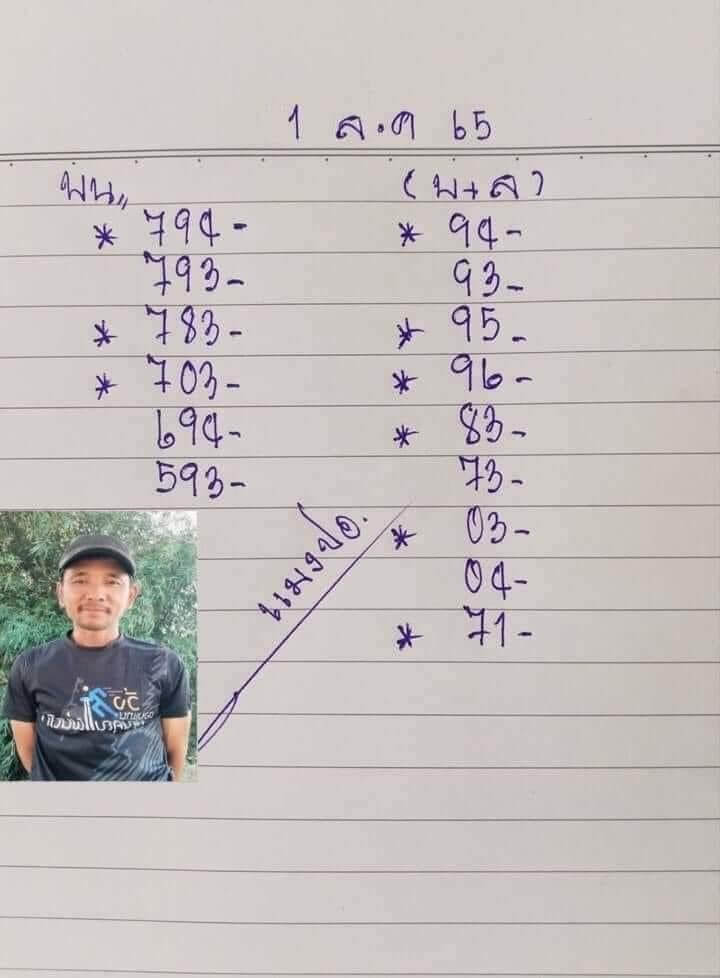 1 ส.ค 65
บน,,
* 794-
793-
* 783-
* 703-
694-
593-
(บ+ล)
* 94-
93-
* 95-
* 96-
* 83-
73-
* 03-
04-
* 71-
แมงปอ.